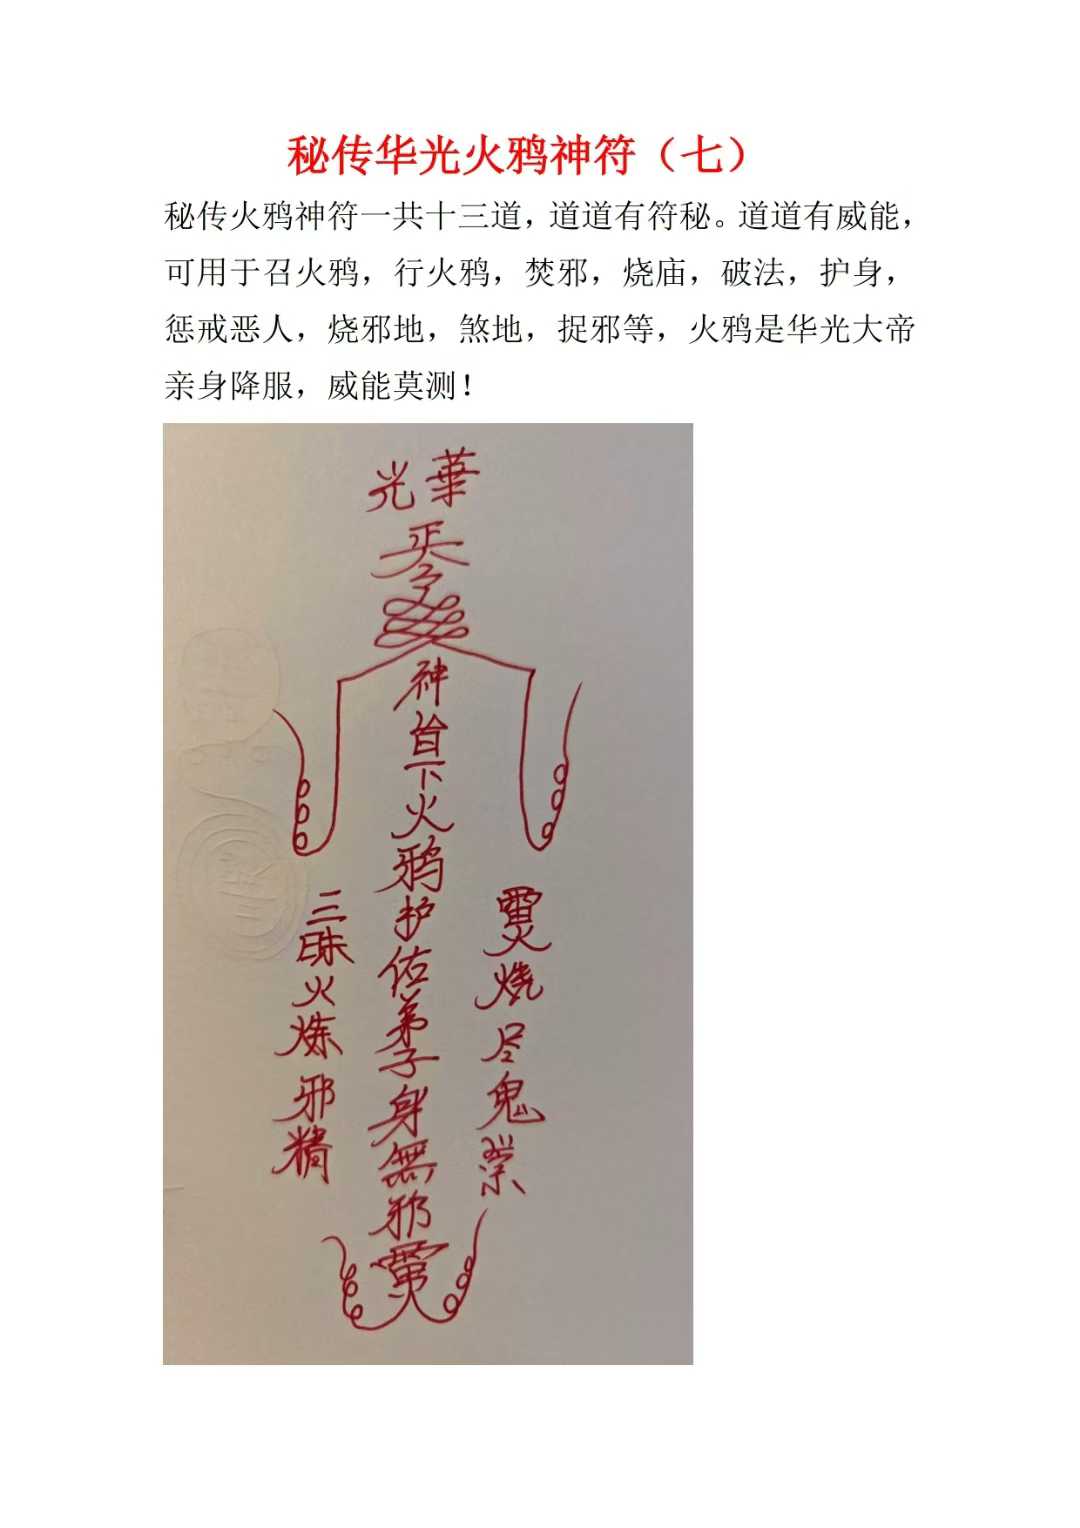 秘传华光火鸦神符（七）
秘传火鸦神符一共十三道，道道有符秘。道道有威能，
可用于召火鸦，行火鸦，焚邪，烧庙，破法，护身，
惩戒恶人，烧邪地，煞地，捉邪等，火鸦是华光大帝
亲身降服，威能莫测！
華光
神旨下火鸦护佑弟子身無邪
火烧尽鬼祟
三昧火炼邪精